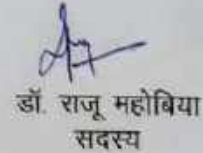 डॉ. राजू महोबिया
सदस्य